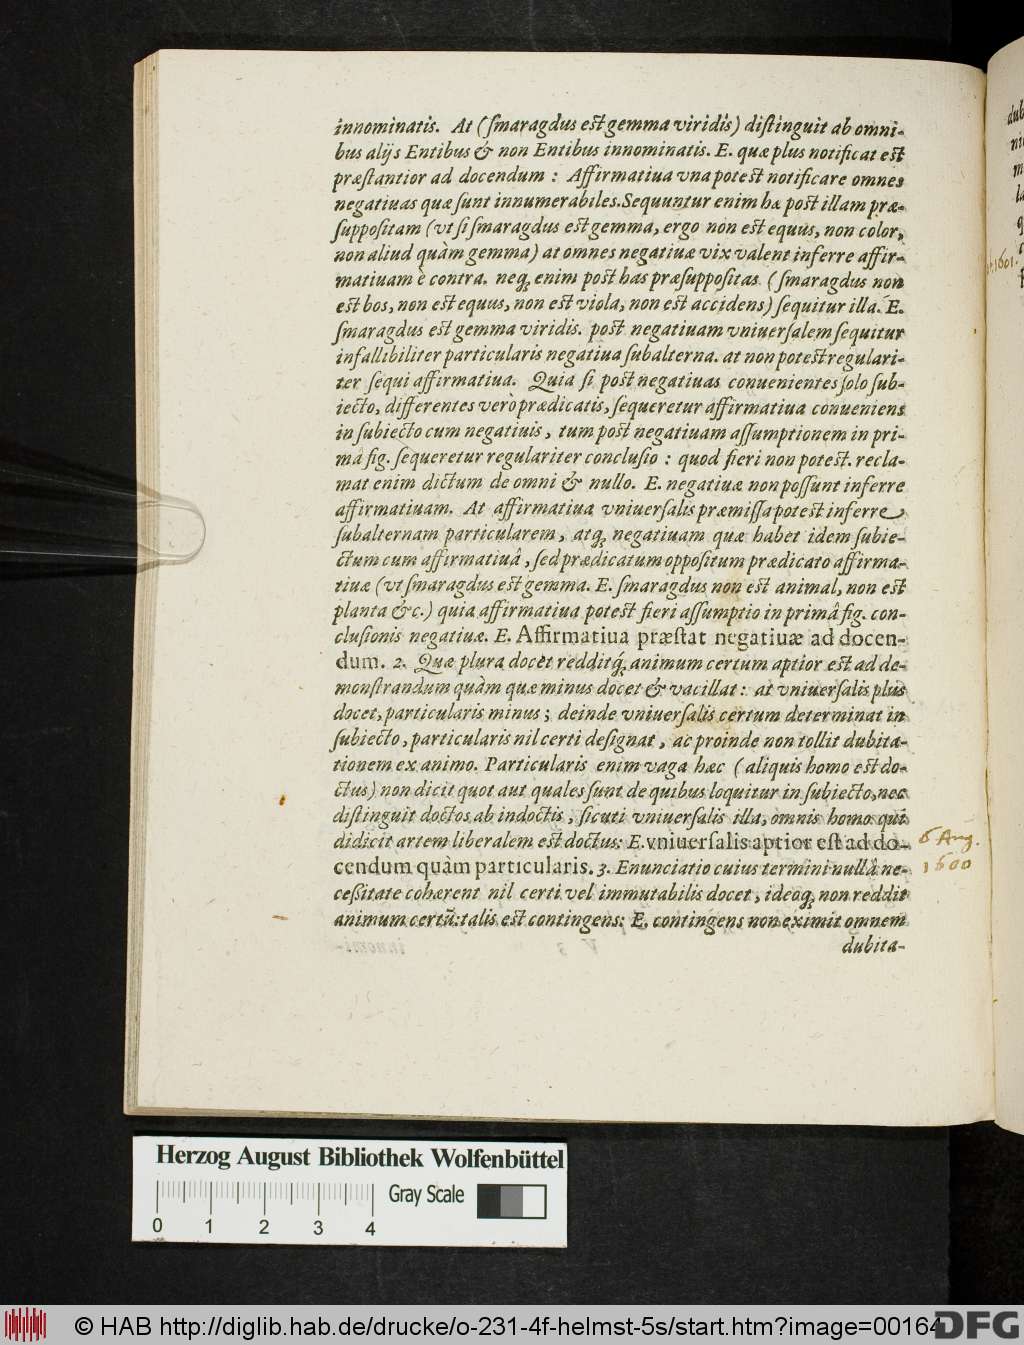 innominatis. At (ſmaragdus est gemma viridis) diſtinguit ab omni-
bus alijs Entibus & non Entibus innominatis. E. quæ plus notificat est
præſtantior ad docendum : Affirmatiua vna potest notificare omnes
negatiuas quæ ſunt innumerabiles. Sequuntur enim hæ post illam præ-
ſuppoſitam (vt ſi ſmaragdus est gemma, ergo non est equus, non color,
non aliud quàm gemma) at omnes negatiuæ vix valent inferre affir-
matiuam è contra. neq; enim post has præſuppoſitas (ſmaragdus non
est bos, non est equus, non est viola, non est accidens) ſequitur illa. E.
ſmaragdus est gemma viridis. post negatiuam vniuerſalem ſequitur
infallibiliter particularis negatiua ſubalterna. at non potest regulari-
ter ſequi affirmatiua. Quia ſi post negatiuas conuenientes ſolo ſub-
iecto, differentes verò prædicatis, ſequeretur affirmatiua conueniens
in ſubiecto cum negatiuis, tum post negatiuam aſſumptionem in pri-
mâ fig. ſequeretur regulariter concluſio : quod fieri non potest. recla-
mat enim dictum de omni & nullo. E. negatiuæ non poſſunt inferre
affirmatiuam. At affirmatiua vniuerſalis præmiſſa potest inferre
ſubalternam particularem, atq; negatiuam quæ habet idem ſubie-
ctum cum affirmatiuâ, ſed prædicatum oppoſitum prædicato affirma-
tiuæ (vt ſmaragdus est gemma. E. ſmaragdus non est animal, non est
planta &c.) quia affirmatiua potest fieri aſſumptio in primâ fig. con-
cluſionis negatiuæ. E. Affirmatiua præſtat negatiuæ ad docen-
dum. 2. Quæ plura docet redditq́; animum certum aptior est ad de-
monſtrandum quàm quæ minus docet & vacillat : at vniuerſalis plus
docet, particularis minus ; deinde vniuerſalis certum determinat in
ſubiecto, particularis nil certi deſignat, ac proinde non tollit dubita-
tionem ex animo. Particularis enim vaga hæc (aliquis homo est do-
ctus) non dicit quot aut quales ſunt de quibus loquitur in ſubiecto, nec
diſtinguit doctos ab indoctis, ſicuti vniuerſalis illa, omnis homo qui
didicit artem liberalem est doctus: E. vniuerſalis aptior eſt ad do-
cendum quàm particularis. 3. Enunciatio cuius termini nullâ ne-
ceßitate cohærent nil certi vel immutabilis docet, ideoq; non reddit
animum certū: talis est contingens: E. contingens non eximit omnem
dubita-
6 Aug.
1600
1601.
Herzog August Bibliothek Wolfenbüttel
Gray Scale
0 1 2 3 4
© HAB http://diglib.hab.de/drucke/o-231-4f-helmst-5s/start.htm?image=00164
DFG